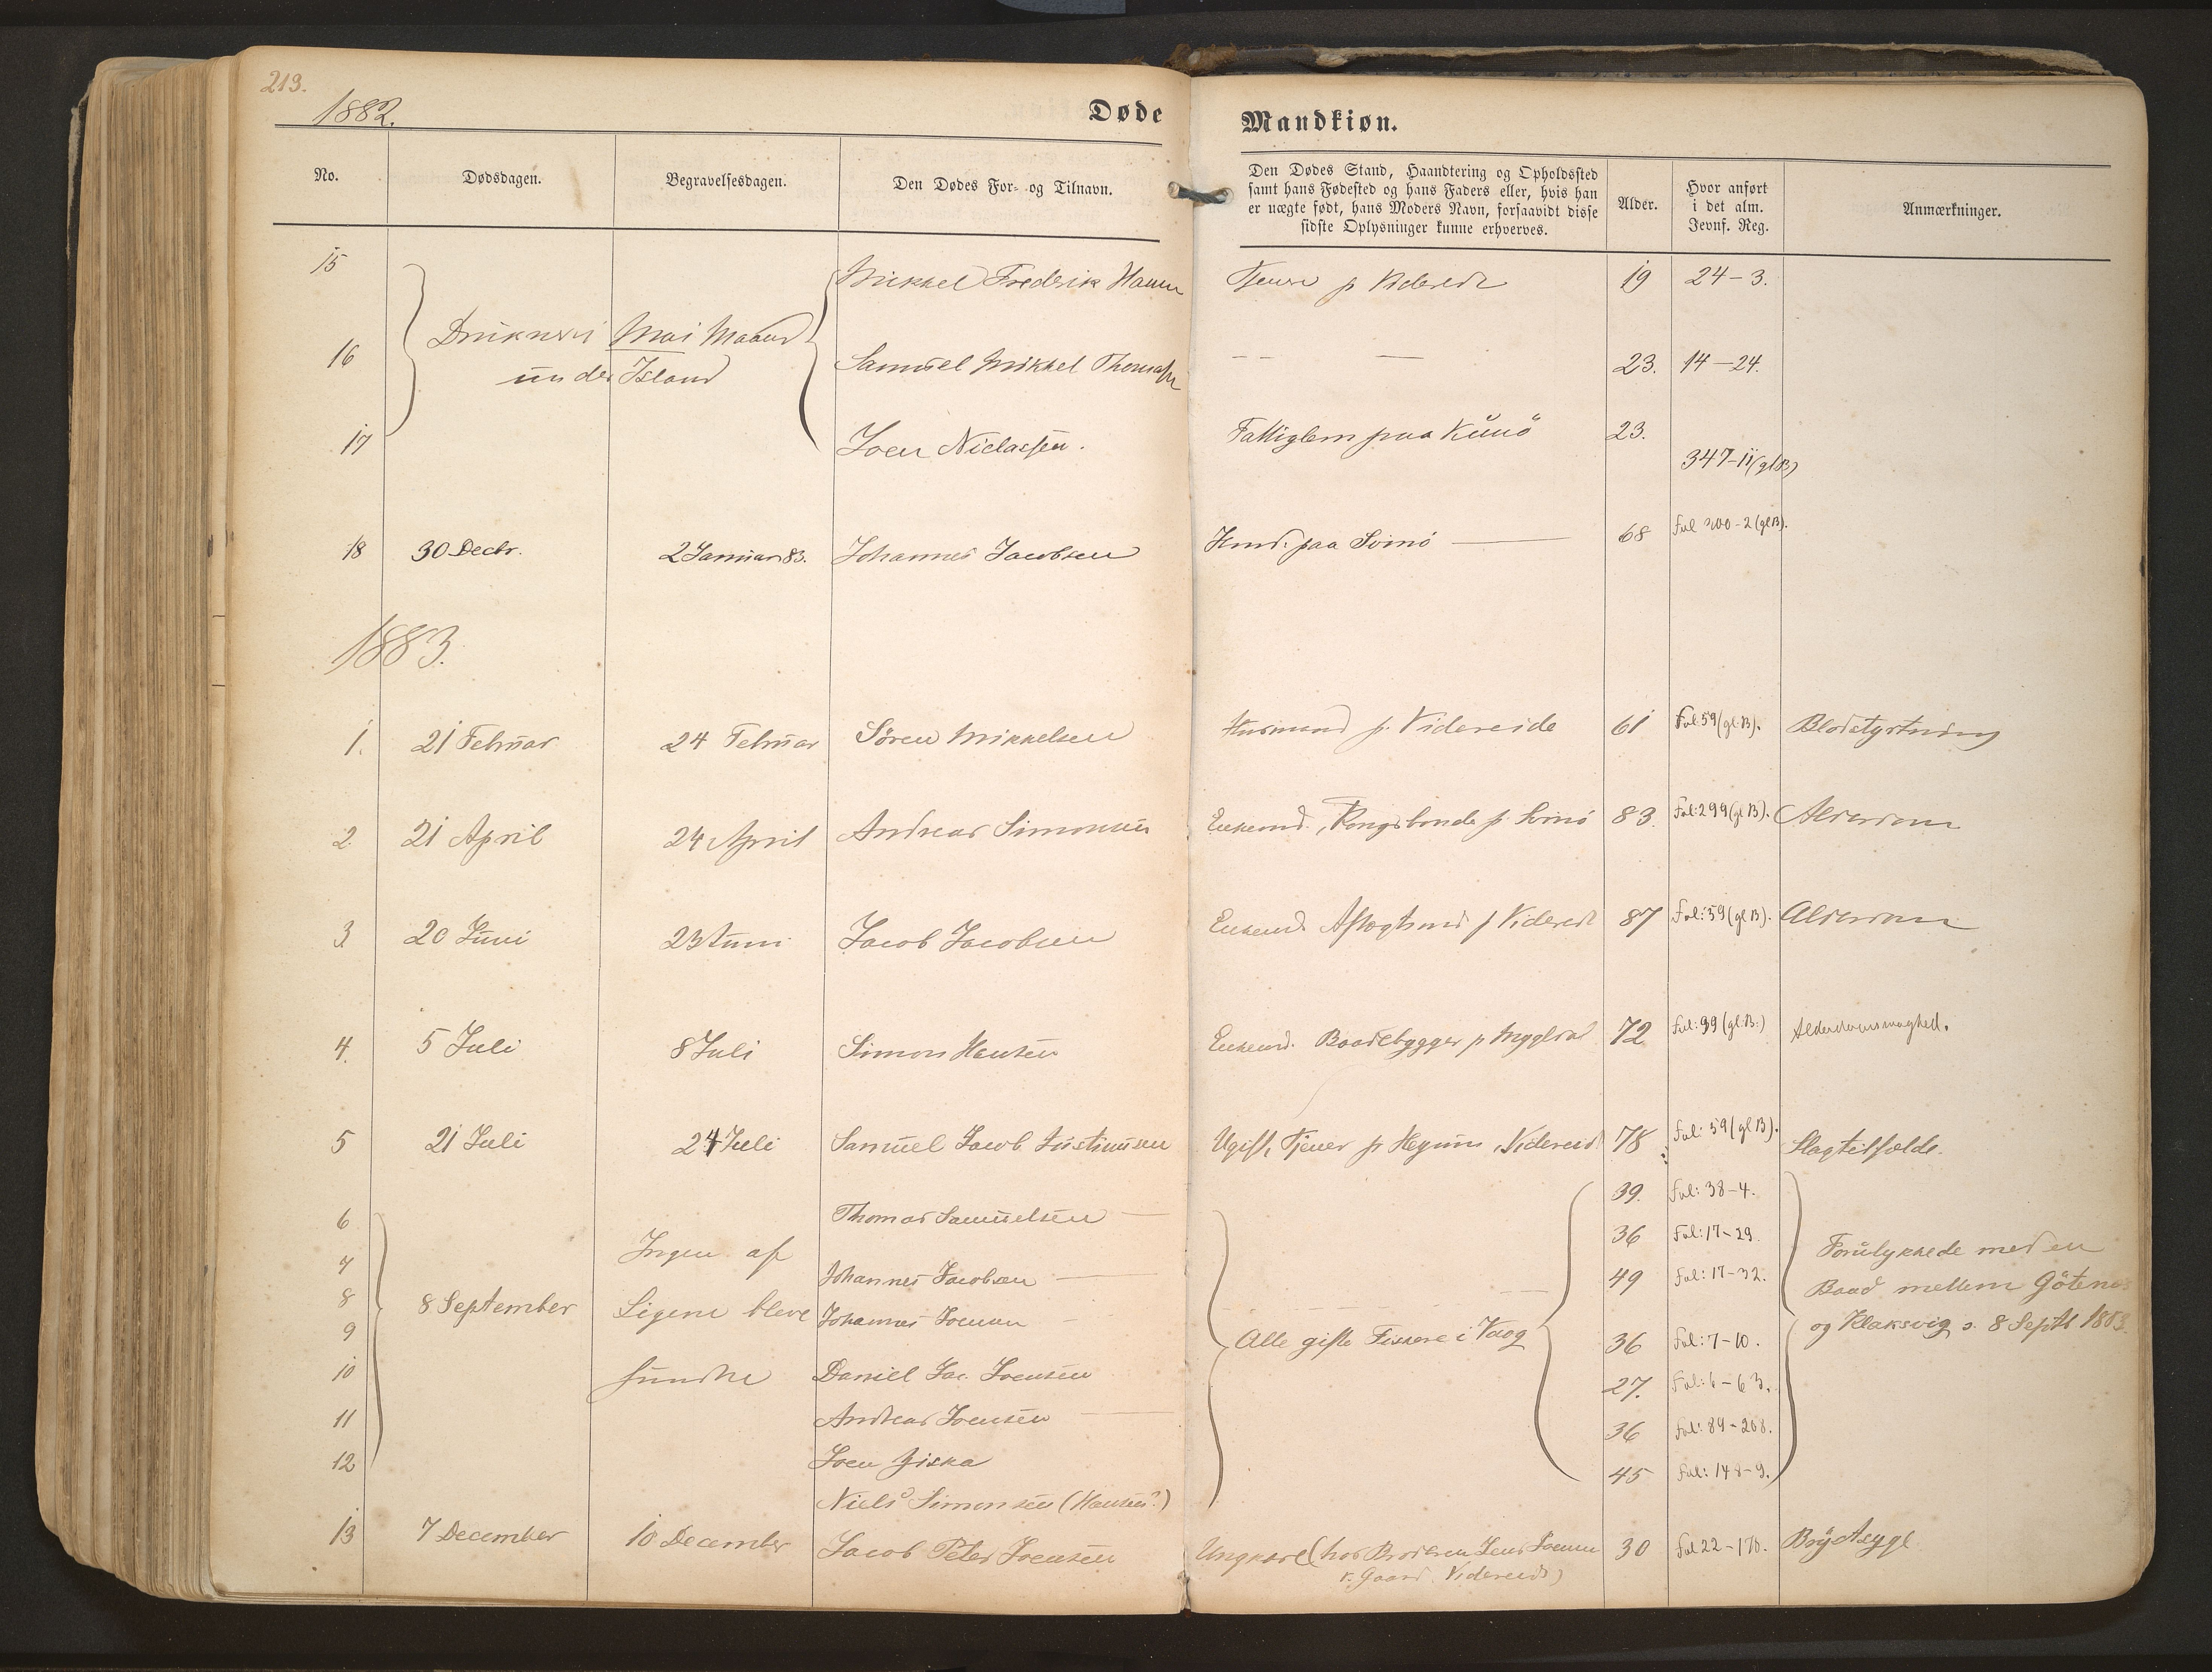 213.
1882.
Døde
Mandkiøn.
No.
Dødsdagen.
Begravelsesdagen.
Den Dødes For- og Tilnavn.
Den Dødes Stand, Haandtering og Opholdssted
samt hans Fødested og hans Faders eller, hvis han
er uægte født, hans Moders Navn, forsaavidt disse
sidste Oplysninger kunne erhverves.
Alder.
Hvor anført
i det alm.
Jevnf. Reg.
Anmærkninger.
15 Mikkel Frederik Hansen Tjener p Videreide 19 24-3.
Druknet i Mai Maaned
16 Samuel Mikkel Thomassen — — — 23. 14-24.
under Island
17 Joen Niclassen. Fattiglem paa Kunö 23.
347-11 (gl B)
18 30 Decbr. 2 Januar 83. Johannes Jacobsen Hmd: paa Svinö 68 Fol 300-2 (gl B).
1883.
1. 21 Februar 24 Februar Sören Mikkelsen Husmand p. Videreide 61 Fol: 59 (gl. B). Blodstyrtning
2. 21 April 24 April Andreas Simonsen Enkemd., Kongsbonde p. Svinö 83. Fol: 299 (gl B). Alderdom
3. 20 Juni 23 Juni Jacob Jacobsen Enkemd. Aftægtsmd p Videreide 87 Fol: 59 (gl B). Alderdom
4. 5 Juli 8 Juli Simon Hansen Enkemd. Baadebygger p 72 Fol: 99 (gl: B:) Alderdomssvaghed.
5 21 Juli 24 Juli Samuel Jacob Justinussen Ugift, Tjener p , Videreide 78 Fol: 59 (gl B). Slagtilfælde.
39. Fol: 38-4.
6 Thomas Samuelsen
36 Fol: 17-29.
Ingen af Forulykkede med en
7 Johannes Jacobsen 49 Fol: 17-32.
Baad mellem Götenæs
8 8 September Ligene bleve Johannes Joensen
og Klaksvig d. 8 Septbr 1883.
9 Alle gifte Fiskere i Vaag 36 Fol: 7-10.
10 fundne Daniel Jac. Joensen 27. Fol: 6-63.
11 Andreas Joensen 36 Fol: 89-208.
12 Joen Ziska 45 Fol: 148-9.
Niels Simonsen (Hansen?)
13 7 December 10 December Jacob Peter Joensen Ungkarl (hos Broderen Jens Joensen 30 Fol 22-170. Brystsyge
v. Gaard. Videreide)